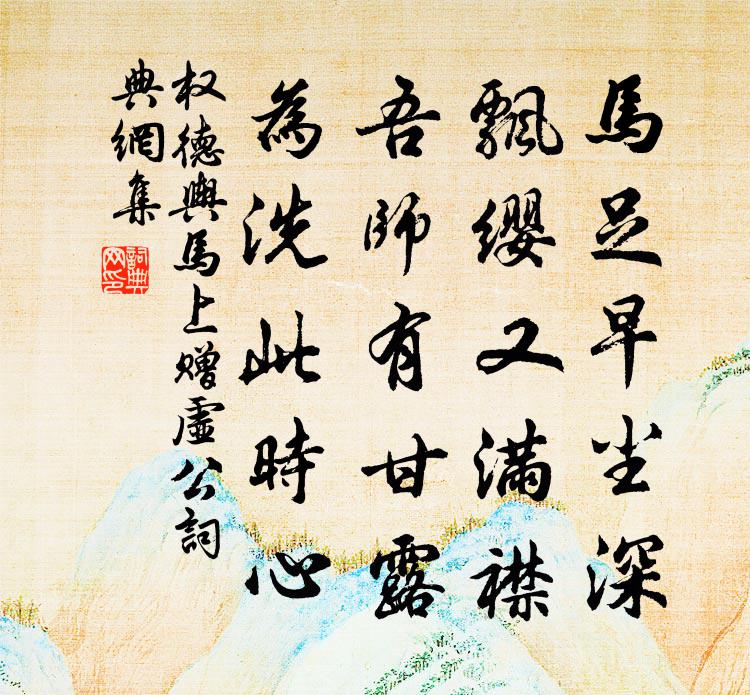 馬足早尘深
飄缨又满襟
吾師有甘露
為洗此時心
权德輿馬上赠虚公詞
典網集
詞典网印